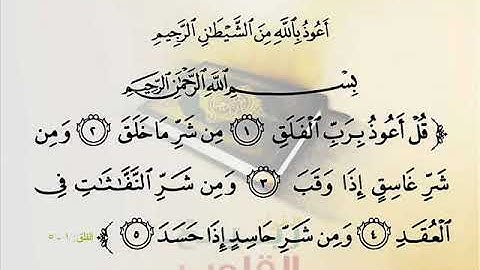 أَعُوذُ بِاللَّهِ مِنَ الشَّيْطَانِ الرَّجِيمِ
بِسْمِ اللَّهِ الرَّحْمَٰنِ الرَّحِيمِ
﴿ قُلْ أَعُوذُ بِرَبِّ الْفَلَقِ ١ مِن شَرِّ مَا خَلَقَ ٢ وَمِن
شَرِّ غَاسِقٍ إِذَا وَقَبَ ٣ وَمِن شَرِّ النَّفَّاثَاتِ فِي
الْعُقَدِ ٤ وَمِن شَرِّ حَاسِدٍ إِذَا حَسَدَ ٥ ﴾ الفلق: ١ - ٥
القلوب